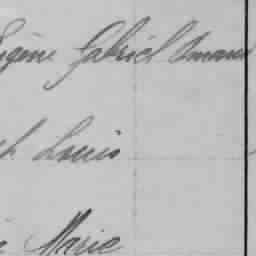 Eugène Gabriel Amand
Louis
Marie